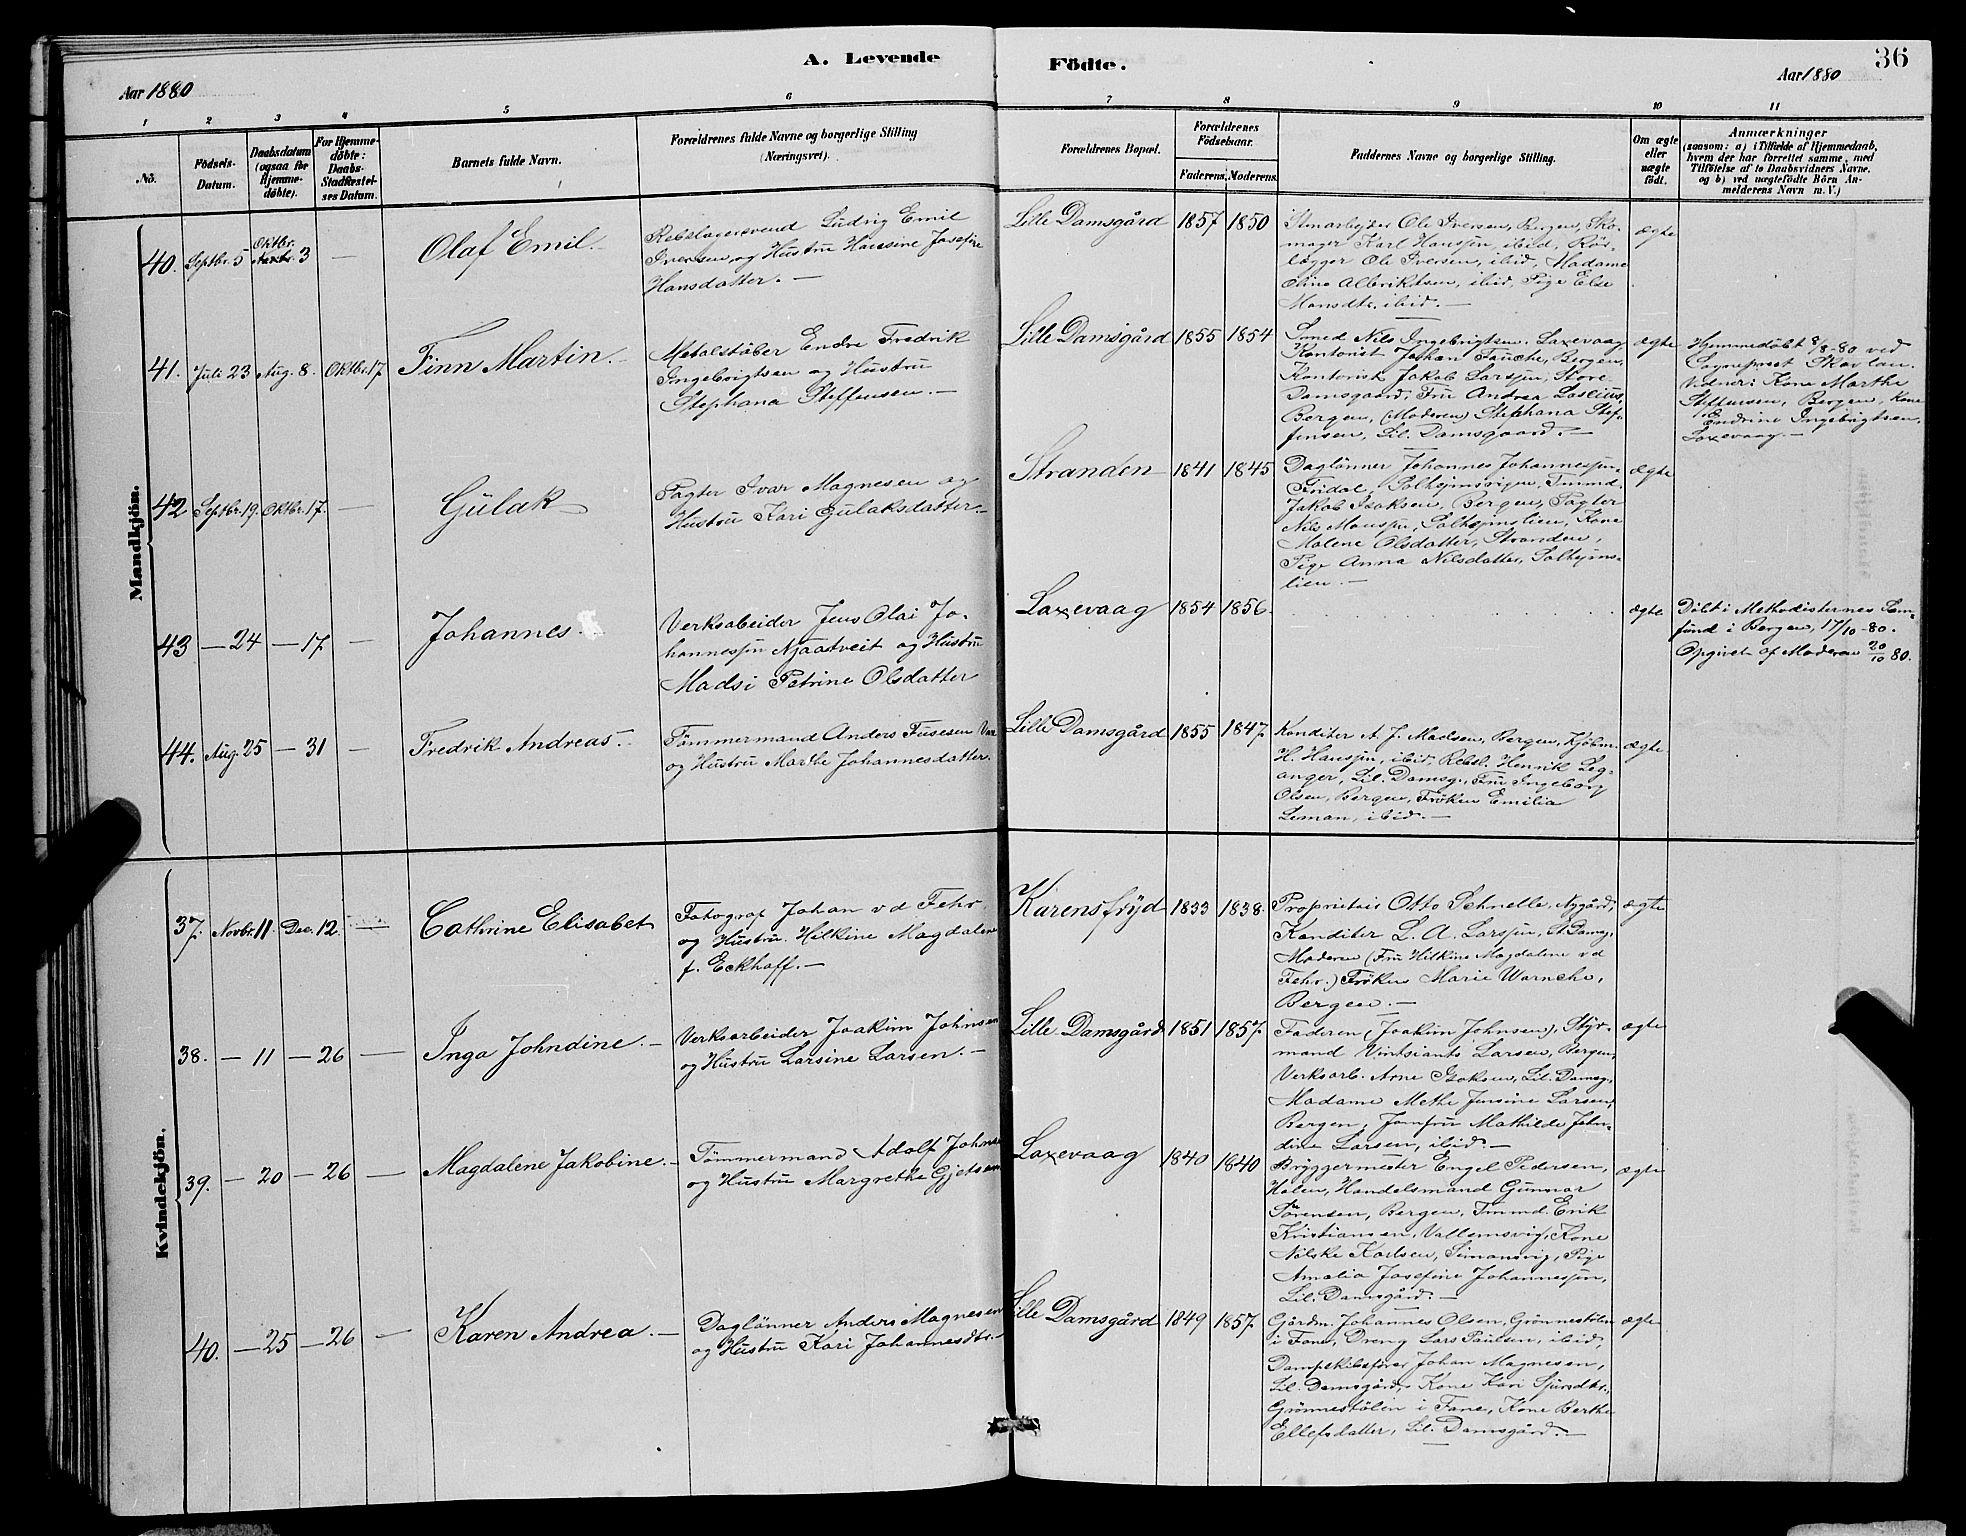 A. Levende
Födte.
36
Aar 1880
Aar 1880
1 2 3 4 5 6 7 8 9 10 11
No.
Födsels-
Datum.
Daabsdatum
(ogsaa for
Hjemme-
döbte).
For Hjemme-
döbte:
Daabs-
Stadfæstel-
ses Datum.
Barnets fulde Navn.
Forældrenes fulde Navne og borgerlige Stilling
(Næringsvei).
Forældrenes Bopæl.
Forældrenes
Födselsaar.
Faderens. Moderens.
Faddernes Navne og borgerlige Stilling.
Om ægte
eller
uægte
födt.
Anmærkninger
(saasom: a) i Tilfælde af Hjemmedaab,
hvem der har forrettet samme, med
Tilföielse af to Daabsvidners Navne.
og b) ved uægtefödte Börn An-
melderens Navn m. V.)
Mandkjön.
40. Septbr. 5 Oktbr. 3 —
Olaf Emil.
Rebslagersvend Ludvig Emil
Iversen, og Hustru Hansine Josefine
Hansdatter. —
Lille Damsgård 1857 1850
Stenarbejder Ole Iversen, Bergen, Sko-
mager Karl Hansen, ibid, Rör-
lægger Ole Iversen, ibid, Madame
Oline Albriktsen, ibid, Pige Else
Monsdtr. ibid. —
ægte
41. Juli 23 Aug. 8. Oktbr. 17
Finn Martin.
Metalstøber Endre Fredrik
Ingebrigtsen og Hustru
Stephana Steffensen. —
Lille Damsgård 1855 1854
Smed Nils Ingebrigtsen, Laxevaag
Kontorist Johan Fasche, Bergen,
Kontorist Jakob Larsen, Store
Damsgaard, Fru Andrea
Bergen, (Moderen) Stephana Stef-
fensen, Lil. Damsgaard. —
ægte
Hjemmedøbt 8/8-80 ved
Sogneprest Skavlan.
Vidner: Kone Marthe
Steffensen, Bergen, Kone
Endrine Ingebrigtsen,
Laxevaag. —
42 Septbr. 19. Oktbr. 17. —
Gulak
Pagter Ivar Magnesen og
Hustru Kari Gulaksdatter. —
Stranden 1841 1845
Daglønner Johannes Johannesen
Jakob Isaksen, Bergen, Pagter
Nils Monsen, Solhejmslien, Kone
Malene Olsdatter, Stranden,
Pige Anna Nilsdatter, Solhejms-
lien. —
ægte
43 — 24 — 17 —
Johannes.
Verksarbeider Jens Olai Jo-
hannesen Njaatveit og Hustru
Madsi Petrine Olsdatter
Laxevaag 1854 1856.
ægte
Døbt i Methodisternes Sam-
fund i Bergen, 17/10-80.
Opgivet af Moderen 20/10 80.
44. Aug. 25 — 31 —
Fredrik Andreas.
Tømmermand Anders Fusesen
og Hustru Marthe Johannesdatter.
Lille Damsgård 1855 1847
Konditer A. J. Madsen, Bergen, Kjøbm.
H. Hansen, ibid, Rebsl. Henrik Leg-
anger, Lil. Damsg., Fru Ingeborg
Olsen, Bergen, Frøken Emilia
Leman, ibid. —
ægte
Kvindekjön.
37. Novbr. 11. Dec. 12. —
Cathrine Elisabet
Fotograf Johan v d Fehr
og Hustru Hilkine Magdalene
f. Eckhoff. —
Karensfryd 1833 1838.
Proprietair Otto Schnelle, Nygård,
Konditer L. A. Larsen, St. Damsg.,
Moderen (Fru Hilkine Magdalene v d
Fehr.) Frøken Marie Warncke,
Bergen. —
ægte
38. — 11 — 26 —
Inga Johndine. —
Verksarbeider Joakim Johnsen
og Hustru Larsine Larsen. —
Lille Damsgård 1851 1857.
Faderen (Joakim Johnsen), Styr-
mand Vintsiants Larsen, Bergen,
Verksarb. Arne Isaksen, Lil. Damsg.,
Madame Methe Jensine Larsen,
Bergen, Jomfru Mathilde John-
dine Larsen, ibid. —
ægte
39. — 20 — 26 —
Magdalene Jakobine. —
Tømmermand Adolf Johnsen
og Hustru Margrethe Gjetsen
Laxevaag 1840 1840
Bryggermester Engel Pedersen,
Holen, Handelsmand Gunnar
Sørensen, Bergen, Tmmd. Erik
Kristiansen, Vallemsvig, Kone
Nilske Karlsen, Simonsvig, Pige
Amalia Josefine Johannesen,
Lil. Damsgård. —
ægte
40. — 25 — 26 —
Karen Andrea. —
Daglønner Anders Magnesen
og Hustru Kari Johannesdtr. —
Lille Damsgård 1849 1857.
Gårdm. Johannes Olsen, Grønnestølen
i Fane, Dreng Lars Paulsen, ibid,
Dampskibsfører Johan Magnesen,
Lil. Damsgård, Kone Kari Sjursdtr.,
Grønnestølen i Fane, Kone Berthe
Ellefsdatter, Lil. Damsgård. —
ægte